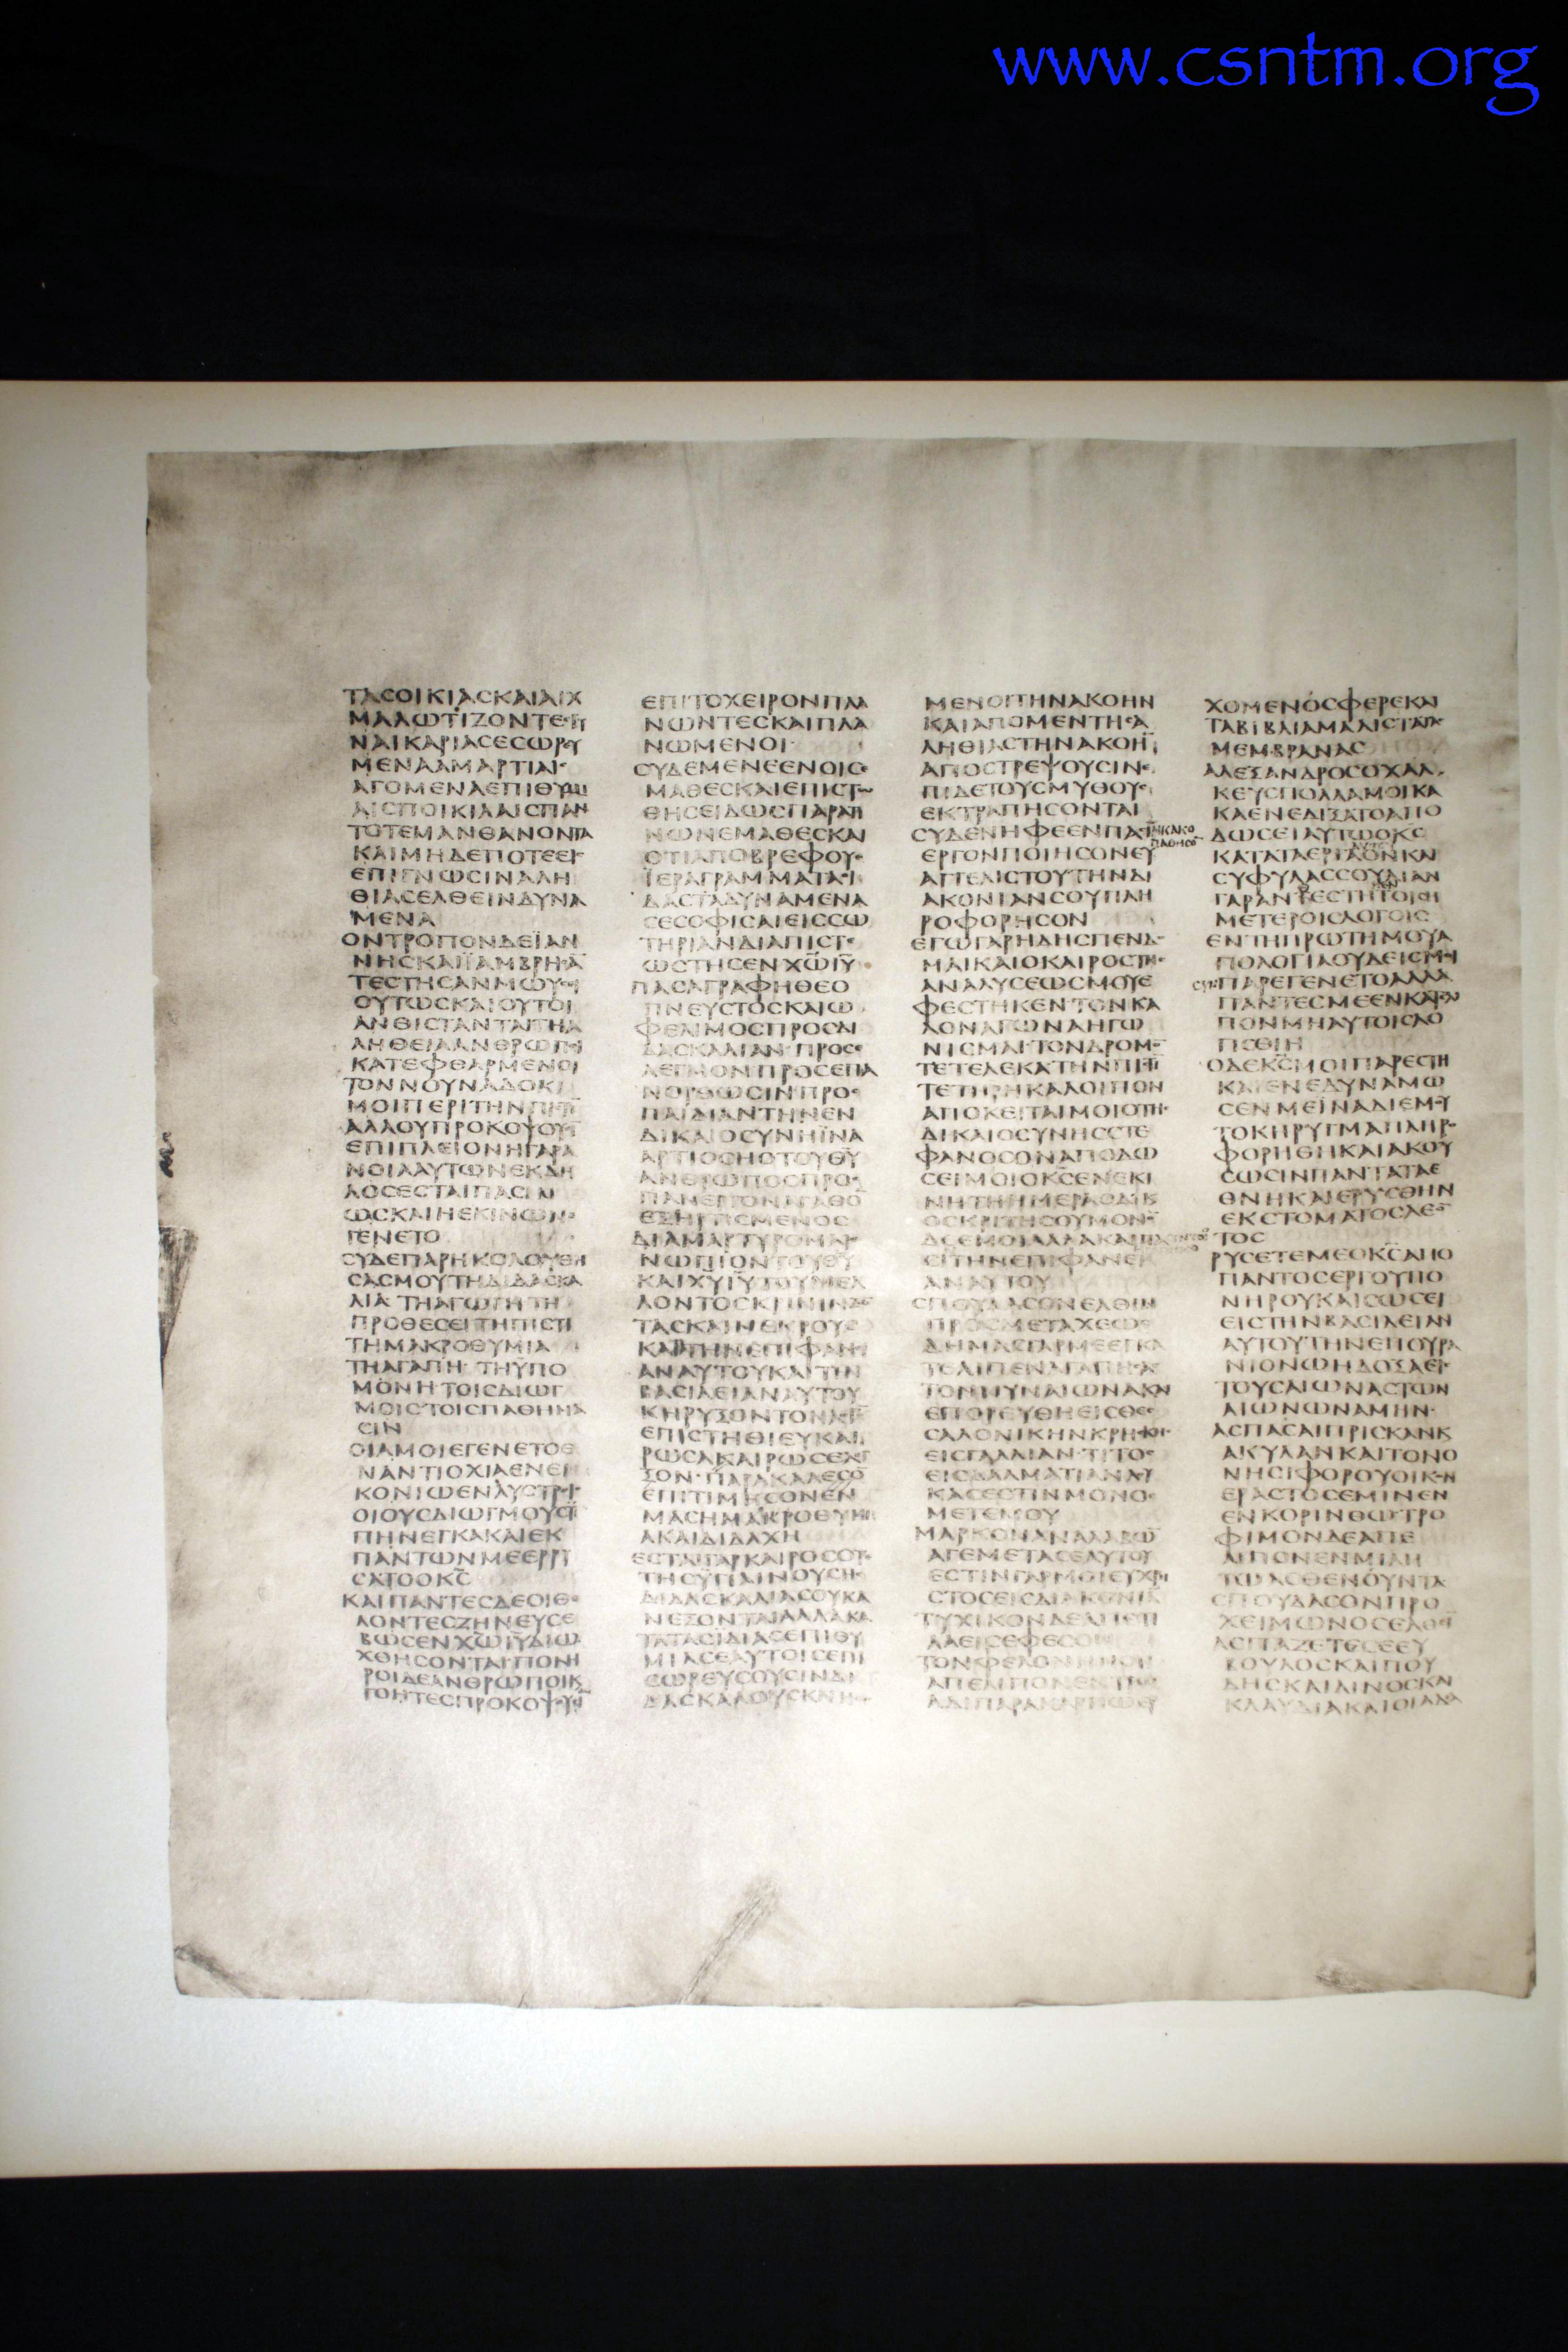 www.csntm.org
ΤΑϹΟΙΚΙΑϹΚΑΙΑΙΧ
ΜΑΛΩΤΙΖΟΝΤΕϹ
ΝΑΙΚΑΡΙΑϹΕϹΩΡΕΥ
ΜΕΝΑΑΜΑΡΤΙΑΙϹ
ΑΓΟΜΕΝΑΕΠΙΘΥΜΙ
ΑΙϹΠΟΙΚΙΛΑΙϹΠΑΝ
ΤΟΤΕΜΑΝΘΑΝΟΝΤΑ
ΚΑΙΜΗΔΕΠΟΤΕΕΙϹ
ΕΠΙΓΝΩϹΙΝΑΛΗ
ΘΙΑϹΕΛΘΕΙΝΔΥΝΑ
ΜΕΝΑ
ΟΝΤΡΟΠΟΝΔΕΪΑΝ
ΝΗϹΚΑΙΪΑΜΒΡΗϹΑ̅
ΤΕϹΤΗϹΑΝΜΩΥϹΙ
ΟΥΤΩϹΚΑΙΟΥΤΟΙ
ΑΝΘΙϹΤΑΝΤΑΙΤΗΑ
ΛΗΘΕΙΑΑΝΘΡΩΠΟΙ
ΚΑΤΕΦΘΑΡΜΕΝΟΙ
ΤΟΝΝΟΥΝΑΔΟΚΙ
ΜΟΙΠΕΡΙΤΗΝΠΙϹΤΙ̅
ΑΛΛΟΥΠΡΟΚΟΨΟΥϹΙ̅
ΕΠΙΠΛΕΙΟΝΗΓΑΡΑ
ΝΟΙΑΑΥΤΩΝΕΚΔΗ
ΛΟϹΕϹΤΑΙΠΑϹΙΝ
ΩϹΚΑΙΗΕΚΙΝΩΝΕ
ΓΕΝΕΤΟ
ϹΥΔΕΠΑΡΗΚΟΛΟΥΘΗ
ϹΑϹΜΟΥΤΗΔΙΔΑϹΚΑ
ΛΙΑ ΤΗΑΓΩΓΗΤΗ
ΠΡΟΘΕϹΕΙΤΗΠΙϹΤΙ
ΤΗΜΑΚΡΟΘΥΜΙΑ
ΤΗΑΓΑΠΗ ΤΗΫΠΟ
ΜΟΝΗΤΟΙϹΔΙΩΓ
ΜΟΙϹΤΟΙϹΠΑΘΗΜΑ
ϹΙΝ
ΟΙΑΜΟΙΕΓΕΝΕΤΟΕ
ΝΑΝΤΙΟΧΙΑΕΝΕΙ
ΚΟΝΙΩΕΝΛΥϹΤΡΟΙϹ
ΟΙΟΥϹΔΙΩΓΜΟΥϹΫ
ΠΗΝΕΓΚΑΚΑΙΕΚ
ΠΑΝΤΩΝΜΕΕΡΡΥ
ϹΑΤΟΟΚ̅Ϲ̅
ΚΑΙΠΑΝΤΕϹΔΕΟΙΘΕ
ΛΟΝΤΕϹΖΗΝΕΥϹΕ
ΒΩϹΕΝΧ̅Ω̅Ι̅Υ̅ΔΙΩ
ΧΘΗϹΟΝΤΑΙΠΟΝΗ
ΡΟΙΔΕΑΝΘΡΩΠΟΙΚ
ΓΟΗΤΕϹΠΡΟΚΟΨΟΥϹΙ̅
ΕΠΙΤΟΧΕΙΡΟΝΠΛΑ
ΝΩΝΤΕϹΚΑΙΠΛΑ
ΝΩΜΕΝΟΙ
ϹΥΔΕΜΕΝΕΕΝΟΙϹΕ
ΜΑΘΕϹΚΑΙΕΠΙϹΤΩ
ΘΗϹΕΙΔΩϹΠΑΡΑΤΙ
ΝΩΝΕΜΑΘΕϹΚΑΙ
ΟΤΙΑΠΟΒΡΕΦΟΥϹ
ΪΕΡΑΓΡΑΜΜΑΤΑΟΙ
ΔΑϹΤΑΔΥΝΑΜΕΝΑ
ϹΕϹΟΦΙϹΑΙΕΙϹϹΩ
ΤΗΡΙΑΝΔΙΑΠΙϹΤΕ
ΩϹΤΗϹΕΝΧ̅Ω̅Ι̅Υ̅
ΠΑϹΑΓΡΑΦΗΘΕΟ
ΠΝΕΥϹΤΟϹΚΑΙΩ
ΦΕΛΙΜΟϹΠΡΟϹΔΙ
ΔΑϹΚΑΛΙΑΝ ΠΡΟϹΕ
ΛΕΓΜΟΝΠΡΟϹΕΠΑ
ΝΟΡΘΩϹΙΝΠΡΟϹ
ΠΑΙΔΙΑΝΤΗΝΕΝ
ΔΙΚΑΙΟϹΥΝΗΪΝΑ
ΑΡΤΙΟϹΗΟΤΟΥΘ̅Υ̅
ΑΝΘΡΩΠΟϹΠΡΟϹ
ΠΑΝΕΡΓΟΝΑΓΑΘΟ̅
ΕΞΗΡΤΙϹΜΕΝΟϹ
ΔΙΑΜΑΡΤΥΡΟΜΑΙΕ
ΝΩΠΙΟΝΤΟΥΘ̅Υ̅
ΚΑΙΧ̅Υ̅Ι̅Υ̅ΤΟΥΜΕΛ
ΛΟΝΤΟϹΚΡΙΝΙΝΖΩ̅
ΤΑϹΚΑΙΝΕΚΡΟΥϹ
ΚΑΙΤΗΝΕΠΙΦΑΝΙ
ΑΝΑΥΤΟΥΚΑΙΤΗΝ
ΒΑϹΙΛΕΙΑΝΑΥΤΟΥ
ΚΗΡΥΞΟΝΤΟΝΛΟΓΟ̅
ΕΠΙϹΤΗΘΙΕΥΚΑΙ
ΡΩϹΑΚΑΙΡΩϹΕΛΕΓ
ΞΟΝ ΠΑΡΑΚΑΛΕϹΟ̅
ΕΠΙΤΙΜΗϹΟΝΕΝ
ΠΑϹΗΜΑΚΡΟΘΥΜΙ
ΑΚΑΙΔΙΔΑΧΗ
ΕϹΤΑΙΓΑΡΚΑΙΡΟϹΟΤΕ
ΤΗϹΫΓΙΑΙΝΟΥϹΗϹ
ΔΙΔΑϹΚΑΛΙΑϹΟΥΚΑ
ΝΕΞΟΝΤΑΙΑΛΛΑΚΑ
ΤΑΤΑϹΪΔΙΑϹΕΠΙΘΥ
ΜΙΑϹΕΑΥΤΟΙϹΕΠΙ
ϹΩΡΕΥϹΟΥϹΙΝΔΙ
ΔΑϹΚΑΛΟΥϹΚΝΗΘΟ
ΜΕΝΟΙΤΗΝΑΚΟΗΝ
ΚΑΙΑΠΟΜΕΝΤΗϹΑ
ΛΗΘΙΑϹΤΗΝΑΚΟΗ̅
ΑΠΟϹΤΡΕΨΟΥϹΙΝΕ
ΠΙΔΕΤΟΥϹΜΥΘΟΥϹ
ΕΚΤΡΑΠΗϹΟΝΤΑΙ
ϹΥΔΕΝΗΦΕΕΝΠΑϹΙ
ΚΑΚΟ
ΠΑΘΗϹΟ̅
ΕΡΓΟΝΠΟΙΗϹΟΝΕΥ
ΑΓΓΕΛΙϹΤΟΥΤΗΝΔΙ
ΑΚΟΝΙΑΝϹΟΥΠΛΗ
ΡΟΦΟΡΗϹΟΝ
ΕΓΩΓΑΡΗΔΗϹΠΕΝΔΟ
ΜΑΙΚΑΙΟΚΑΙΡΟϹΤΗϹ
ΑΝΑΛΥϹΕΩϹΜΟΥΕ
ΦΕϹΤΗΚΕΝΤΟΝΚΑ
ΛΟΝΑΓΩΝΑΗΓΩ
ΝΙϹΜΑΙΤΟΝΔΡΟΜΟ̅
ΤΕΤΕΛΕΚΑΤΗΝΠΙϹΤΙ̅
ΤΕΤΗΡΗΚΑΛΟΙΠΟΝ
ΑΠΟΚΕΙΤΑΙΜΟΙΟΤΗϹ
ΔΙΚΑΙΟϹΥΝΗϹϹΤΕ
ΦΑΝΟϹΟΝΑΠΟΔΩ
ϹΕΙΜΟΙΟΚ̅Ϲ̅ΕΝΕΚΙ
ΝΗΤΗΗΜΕΡΑΟΔΙΚ
ΟϹΚΡΙΤΗϹΟΥΜΟΝΟ̅
ΔΕΕΜΟΙΑΛΛΑΚΑΙ
ϹΙΤΗΝΕΠΙΦΑΝΕΙ
ΑΝΑΥΤΟΥ
ϹΠΟΥΔΑϹΟΝΕΛΘΙΝ
ΠΡΟϹΜΕΤΑΧΕΩϹ
ΔΗΜΑϹΓΑΡΜΕΕΓΚΑ
ΤΕΛΙΠΕΝΑΓΑΠΗϹΑϹ
ΤΟΝΝΥΝΑΙΩΝΑΚΑΙ
ΕΠΟΡΕΥΘΗΕΙϹΘΕϹ
ϹΑΛΟΝΙΚΗΝΚΡΗϹΚΗϹ
ΕΙϹΓΑΛΛΙΑΝ ΤΙΤΟϹ
ΕΙϹΔΑΛΜΑΤΙΑΝΛΟΥ
ΚΑϹΕϹΤΙΝΜΟΝΟϹ
ΜΕΤΕΜΟΥ
ΜΑΡΚΟΝΑΝΑΛΑΒΩ̅
ΑΓΕΜΕΤΑϹΕΑΥΤΟΥ
ΕϹΤΙΝΓΑΡΜΟΙΕΥΧΡΗ
ϹΤΟϹΕΙϹΔΙΑΚΟΝΙΑ̅
ΤΥΧΙΚΟΝΔΕΑΠΕϹΤΙ
ΛΑΕΙϹΕΦΕϹΟΝ
ΤΟΝΦΕΛΟΝΗΝΟΝ
ΑΠΕΛΙΠΟΝΕΝΤΡΩ
ΑΔΙΠΑΡΑΚΑΡΠΩΕΡ
ΧΟΜΕΝΟϹΦΕΡΕΚΑΙ
ΤΑΒΙΒΛΙΑΜΑΛΙϹΤΑΤΑϹ
ΜΕΜΒΡΑΝΑϹ
ΑΛΕΞΑΝΔΡΟϹΟΧΑΛ
ΚΕΥϹΠΟΛΛΑΜΟΙΚΑ
ΚΑΕΝΕΔΙΞΑΤΟΑΠΟ
ΔΩϹΕΙΑΥΤΩΟΚ̅Ϲ̅
ΚΑΤΑΤΑΕΡΓΑΟΝΚΑΙ
ϹΥΦΥΛΑϹϹΟΥΛΙΑΝ
ΓΑΡΑΝΤΕϹΤΗΤΟΙϹΗ
ΜΕΤΕΡΟΙϹΛΟΓΟΙϹ
ΕΝΤΗΠΡΩΤΗΜΟΥΑ
ΠΟΛΟΓΙΑΟΥΔΕΙϹΜΟΙ
ΠΑΡΕΓΕΝΕΤΟΑΛΛΑ
ΠΑΝΤΕϹΜΕΕΝΚΑΤΕΛΙ
ΠΟΝΜΗΑΥΤΟΙϹΛΟ
ΓΙϹΘΙΗ
ΟΔΕΚ̅Ϲ̅ΜΟΙΠΑΡΕϹΤΗ
ΚΑΙΕΝΕΔΥΝΑΜΩ
ϹΕΝΜΕΪΝΑΔΙΕΜΟΥ
ΤΟΚΗΡΥΓΜΑΠΛΗΡΟ
ΦΟΡΗΘΗΚΑΙΑΚΟΥ
ϹΩϹΙΝΠΑΝΤΑΤΑΕ
ΘΝΗΚΑΙΕΡΥϹΘΗΝ
ΕΚϹΤΟΜΑΤΟϹΛΕΟ̅
ΤΟϹ
ΡΥϹΕΤΕΜΕΟΚ̅Ϲ̅ΑΠΟ
ΠΑΝΤΟϹΕΡΓΟΥΠΟ
ΝΗΡΟΥΚΑΙϹΩϹΕΙ
ΕΙϹΤΗΝΒΑϹΙΛΕΙΑΝ
ΑΥΤΟΥΤΗΝΕΠΟΥΡΑ
ΝΙΟΝΩΗΔΟΞΑΕΙϹ
ΤΟΥϹΑΙΩΝΑϹΤΩΝ
ΑΙΩΝΩΝΑΜΗΝ
ΑϹΠΑϹΑΙΠΡΙϹΚΑΝΚ
ΑΚΥΛΑΝΚΑΙΤΟΝΟ
ΝΗϹΙΦΟΡΟΥΟΙΚΟΝ
ΕΡΑϹΤΟϹΕΜΙΝΕΝ
ΕΝΚΟΡΙΝΘΩΤΡΟ
ΦΙΜΟΝΔΕΑΠΕ
ΛΙΠΟΝΕΝΜΙΛΗ
ΤΩΑϹΘΕΝΟΥΝΤΑ
ϹΠΟΥΔΑϹΟΝΠΡΟ
ΧΕΙΜΩΝΟϹΕΛΘΕΙ̅
ΑϹΠΑΖΕΤΕϹΕΕΥ
ΒΟΥΛΟϹΚΑΙΠΟΥ
ΔΗϹΚΑΙΛΙΝΟϹΚΑΙ
ΚΛΑΥΔΙΑΚΑΙΟΙΑΔΕΛ